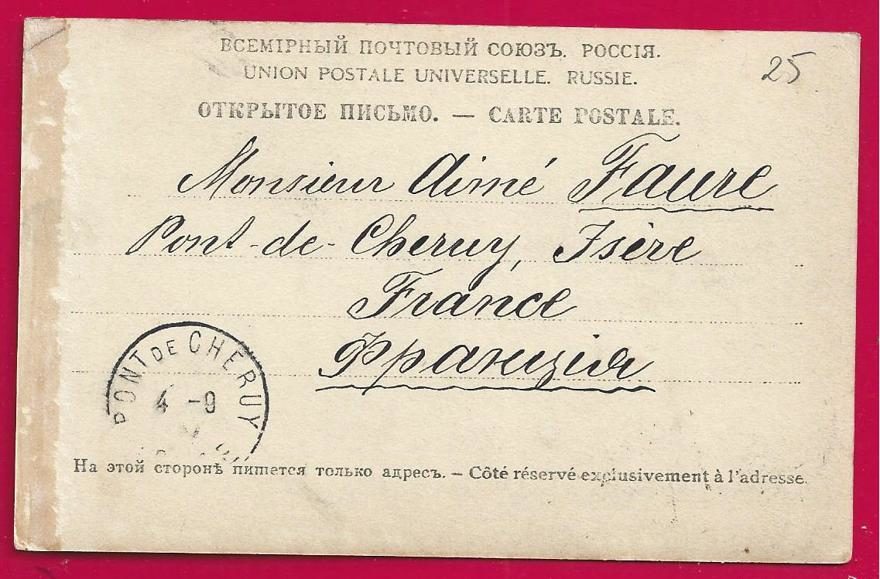 ВСЕМІРНЫЙ ПОЧТОВЫЙ СОЮЗЪ. РОССІЯ.
UNION POSTALE UNIVERSELLE. RUSSIE.
25
ОТКРЫТОЕ ПИСЬМО. — CARTE POSTALE.
Monsieur Aimé Faure
Pont-de-Cheruy, Isère
France
Франція
PONT DE CHERUY
4 -9
На этой сторонѣ пишется только адресъ. — Côté réservé exclusivement à l'adresse.